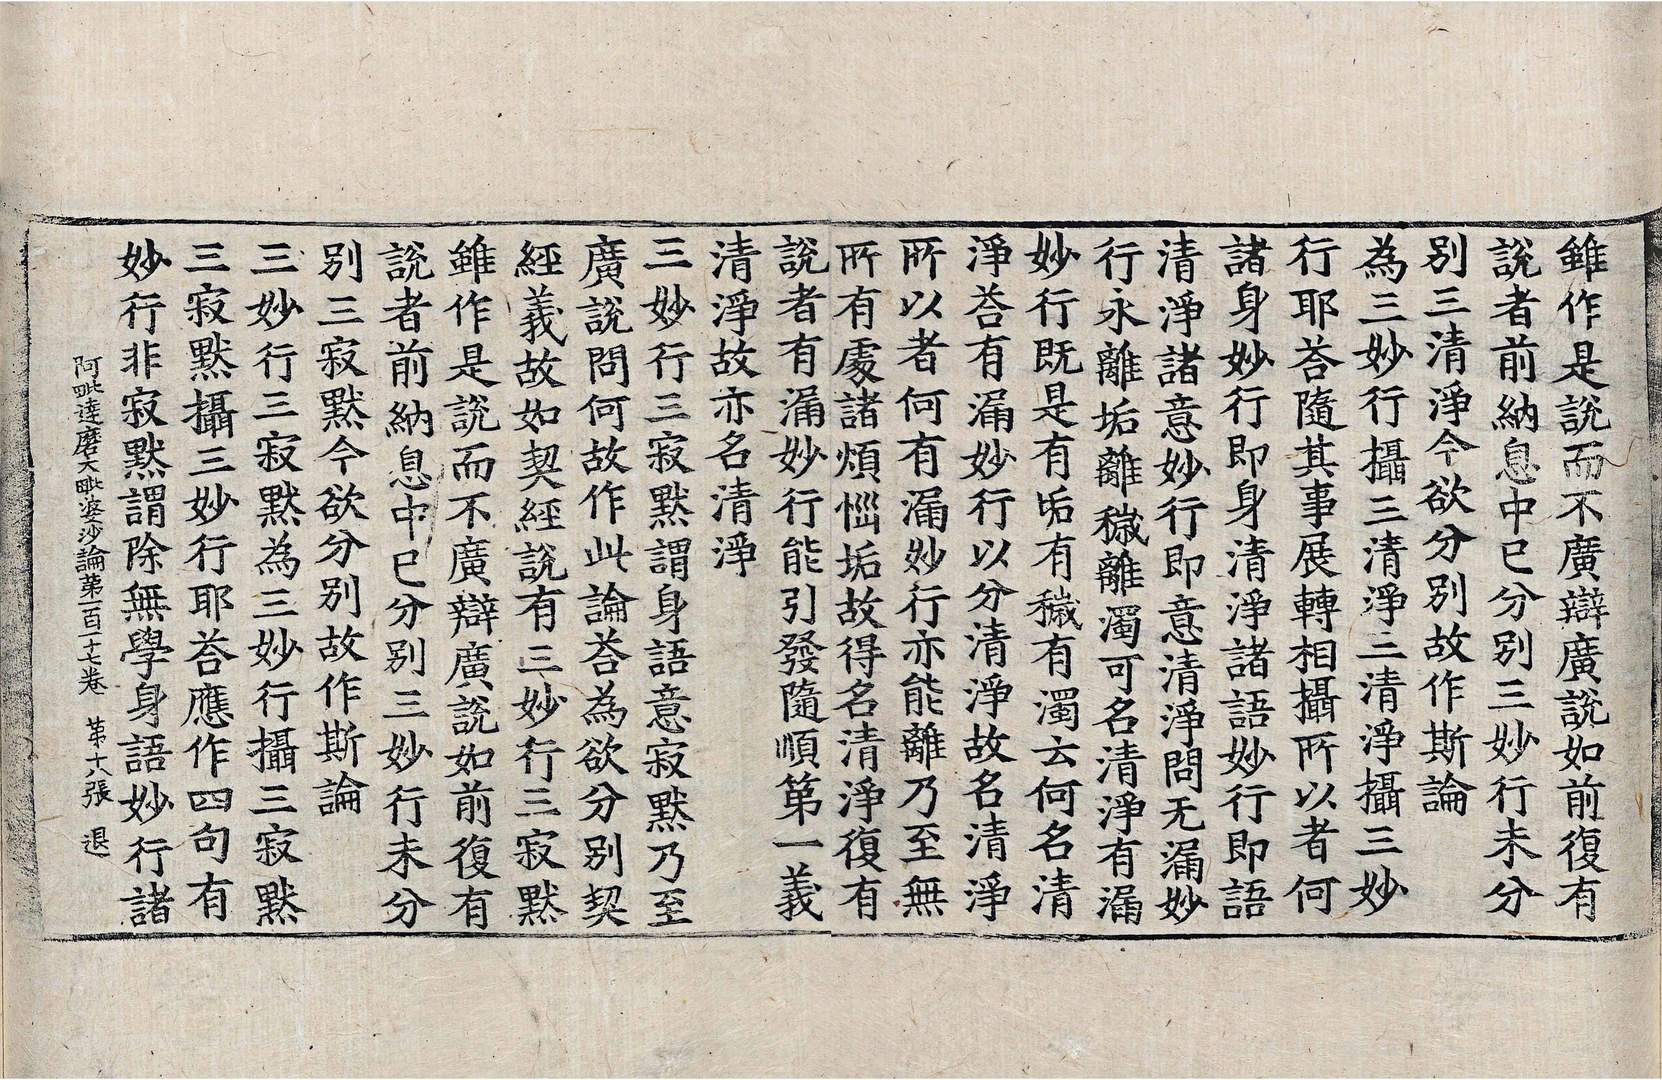 雖作是說而不廣辯廣說如前復有
說者前納息中已分別三妙行未分
别三清淨今欲分別故作斯論
為三妙行攝三清淨三清淨攝三妙
行耶荅隨其事展轉相攝所以者何
諸身妙行即身清淨諸語妙行即語
清淨諸意妙行即意清淨問无漏妙
行永離垢離穢離濁可名清淨有漏
妙行既是有垢有穢有濁云何名清
淨荅有漏妙行以分清淨故名清淨
所以者何有漏妙行亦能離乃至無
所有處諸煩惱垢故得名清淨復有
說者有漏妙行能引發隨順第一義
清淨故亦名清淨
三妙行三寂默謂身語意寂默乃至
廣說問何故作此論荅為欲分別契
經義故如契經說有三妙行三寂默
雖作是說而不廣辯廣說如前復有
說者前納息中已分別三妙行未分
別三寂默今欲分別故作斯論
三妙行三寂默為三妙行攝三寂默
三寂默攝三妙行耶荅應作四句有
妙行非寂默謂除無學身語妙行諸
阿毗達磨大毗婆沙論第一百一十七卷 第十八張 退